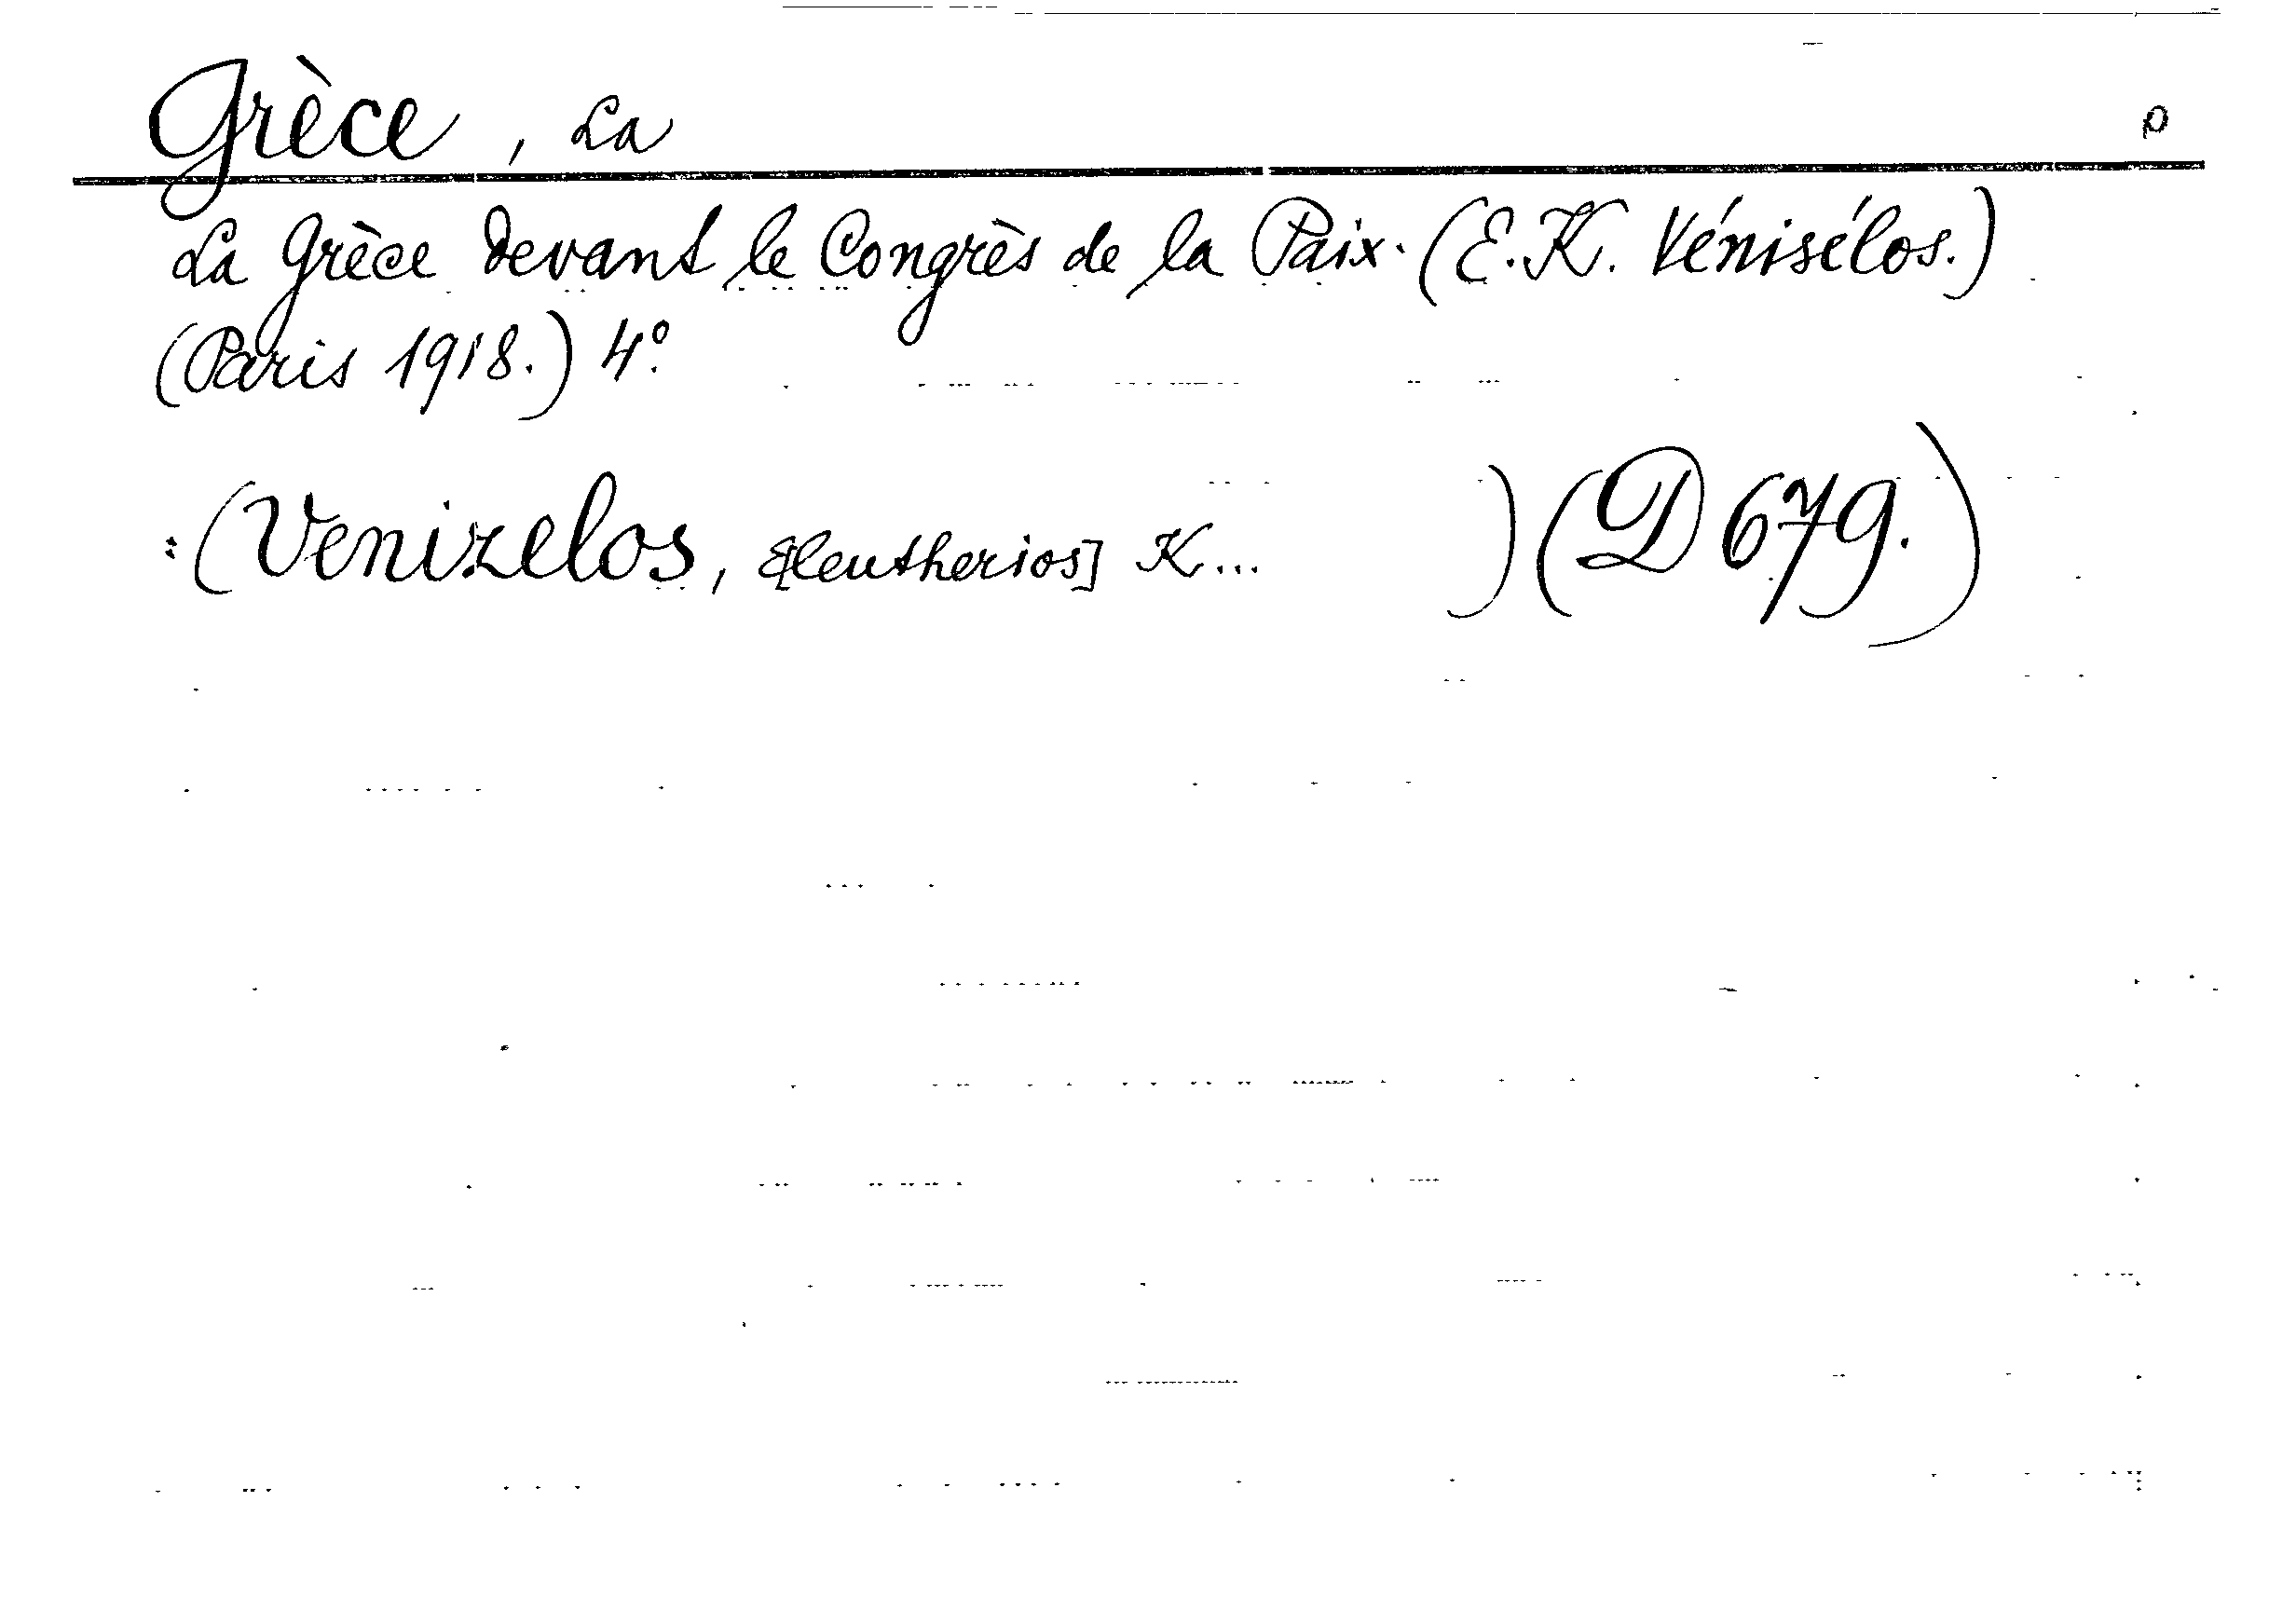 Grèce, La ρ
La Grèce devant le Congrès de la Paix. (E. K. Vénisélos.)
(Paris 1918.) 4°.
: (Venizelos, E[leutherios] K... ) (D 679.)